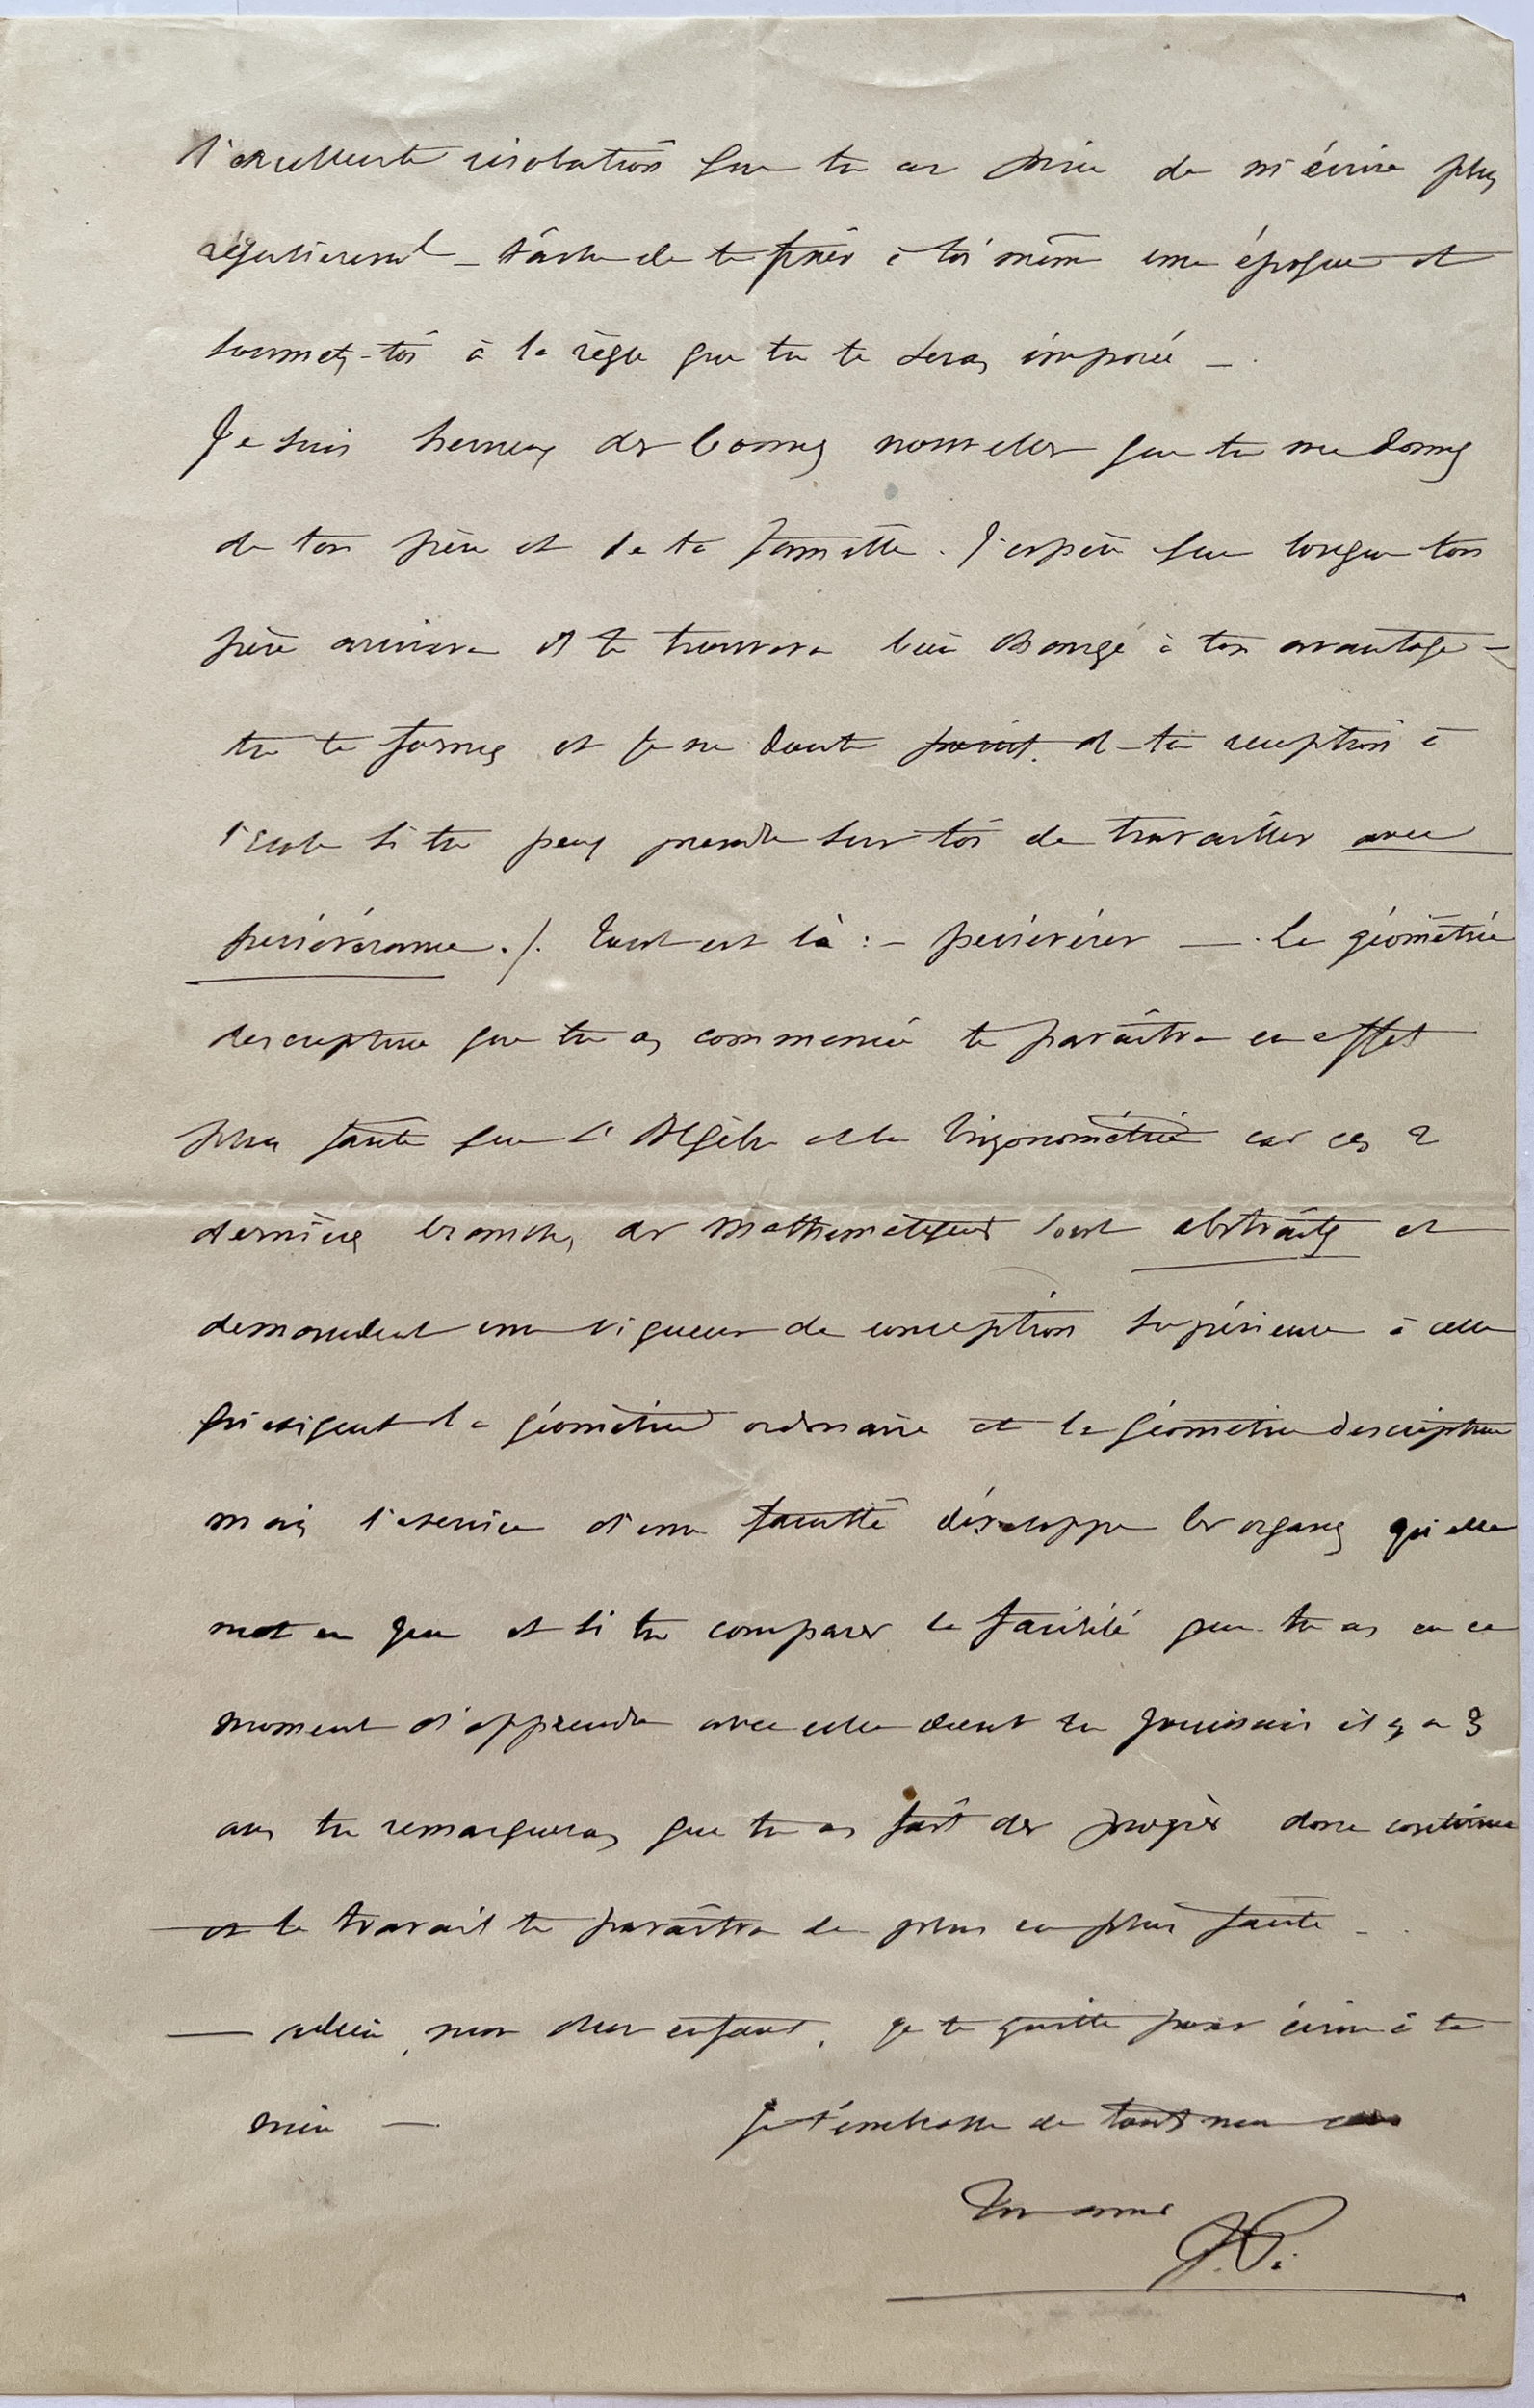 l'excellente résolution que tu as prise de m'écrire plus
régulièremt _ tâche de te fixer à toi même une époque et
soumets-toi à la règle que tu te seras imposée _
Je suis heureux des bonnes nouvelles que tu me donnes
de ton père et de ta famille. J'espère que lorsque ton
père arrivera il te trouvera bien changé à ton avantage _
tu te formes et je ne doute point de ta réception à
l'Ecole si tu peux prendre sur toi de travailler avec
persévérance ./. Tout est là : - persévérer —. La géométrie
descriptive que tu as commencée te paraîtra en effet
plus facile que l'Algèbre et la trigonométrie car ces 2
dernières branches des mathématiques sont abstraites et
demandent une vigueur de conception supérieure à celle
qu'exigent la géométrie ordinaire et la géométrie descriptive
mais l'exercice d'une faculté développe les organes qu'elle
met en jeu et si tu compares la facilité que tu as en ce
moment d'apprendre avec celle dont tu jouissais il y a 3
ans tu remarqueras que tu as fait des progrès donc continue
et le travail te paraîtra de plus en plus facile _
— adieu, mon cher enfant, je te quitte pour écrire à ta
mère — Je t'embrasse de tout mon cœur
Ton ami
J.P.